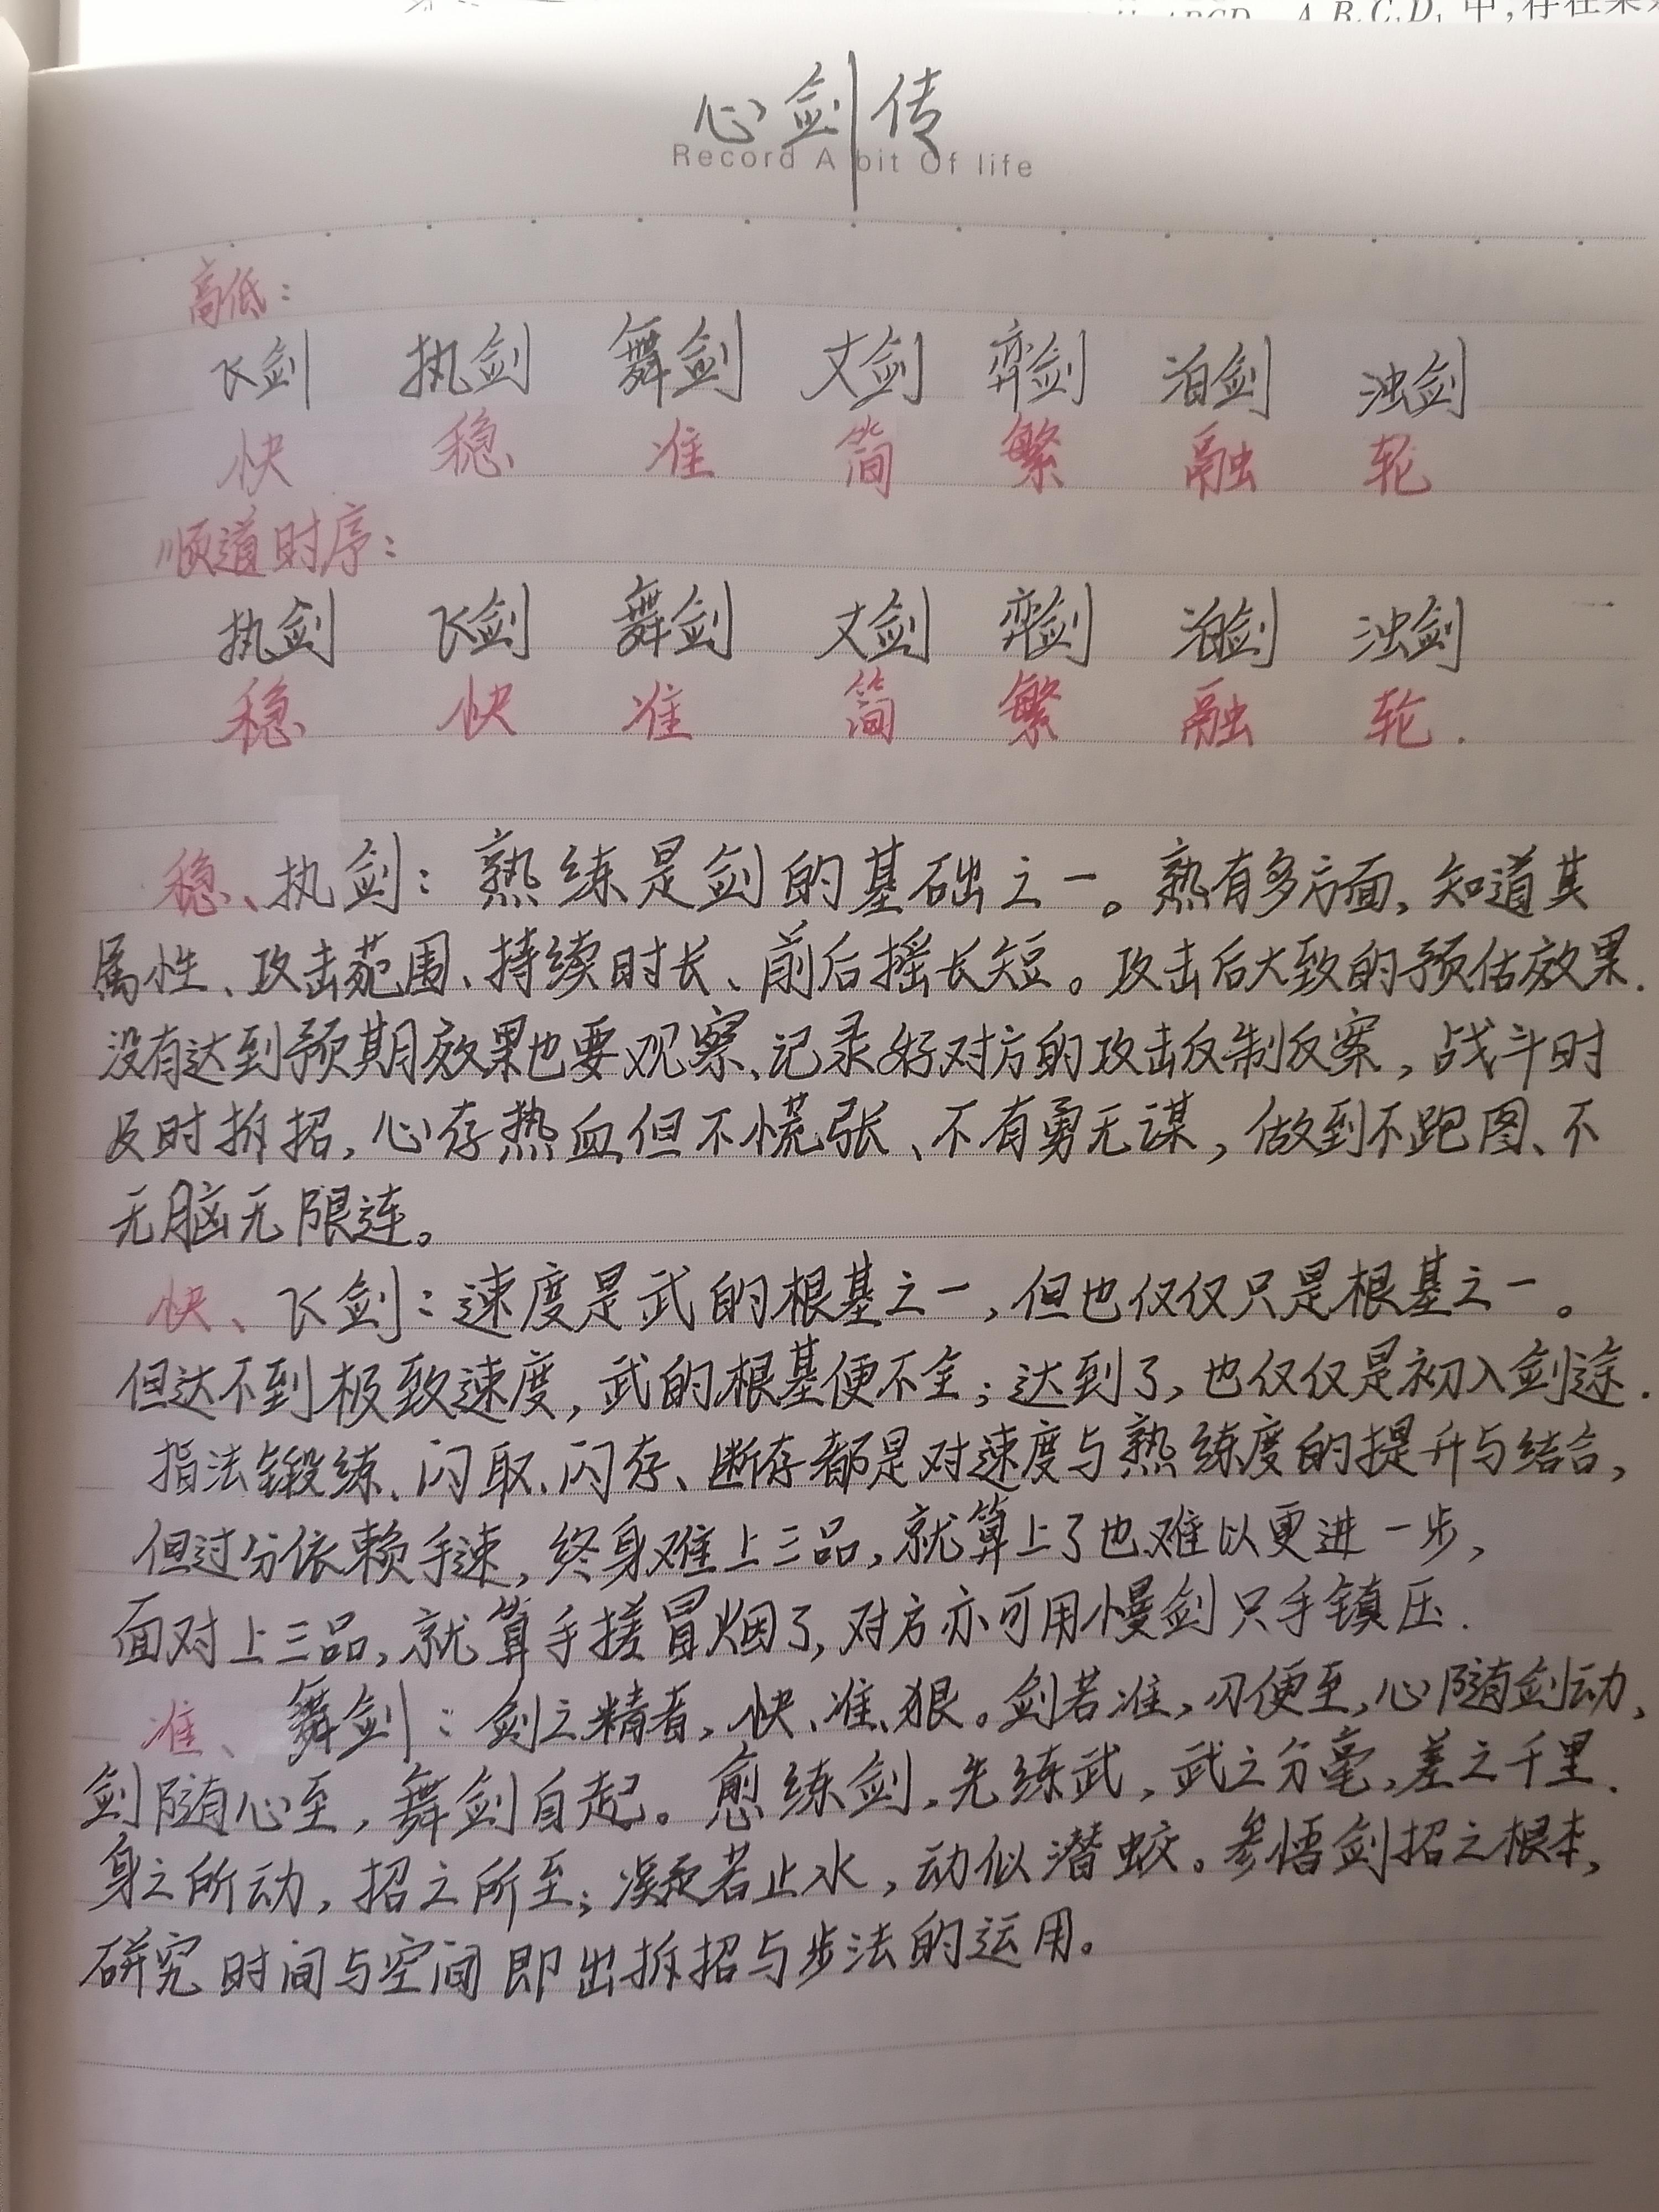 中,存在某
心剑传
Record A bit Of life
高低:
飞剑 执剑 舞剑 丈剑 弈剑 泊剑 浊剑
快 稳 准 简 繁 融 轮
顺道时序:
执剑 飞剑 舞剑 丈剑 弈剑 泊剑 浊剑
稳 快 准 简 繁 融 轮.
稳、执剑:熟练是剑的基础之一。熟有多方面,知道其
属性、攻击范围、持续时长、前后摇长短。攻击后大致的预估效果.
没有达到预期效果也要观察、记录好对方的攻击反制反案,战斗时
及时拆招,心存热血但不慌张、不有勇无谋,做到不跑图、不
无脑无限连。
快、飞剑:速度是武的根基之一,但也仅仅只是根基之一。
但达不到极致速度,武的根基便不全;达到了,也仅仅是初入剑途.
指法锻练、闪取、闪存、断存都是对速度与熟练度的提升与结合,
但过分依赖手速,终身难上三品,就算上了也难以更进一步,
面对上三品,就算手搓冒烟了,对方亦可用慢剑只手镇压.
准、舞剑:剑之精者,快、准、狠。剑若准,刃便至,心随剑动,
剑随心至,舞剑自起。愈练剑,先练武,武之分毫,差之千里.
身之所动,招之所至;凝若止水,动似潜蛟。参悟剑招之根本,
研究时间与空间即出拆招与步法的运用。